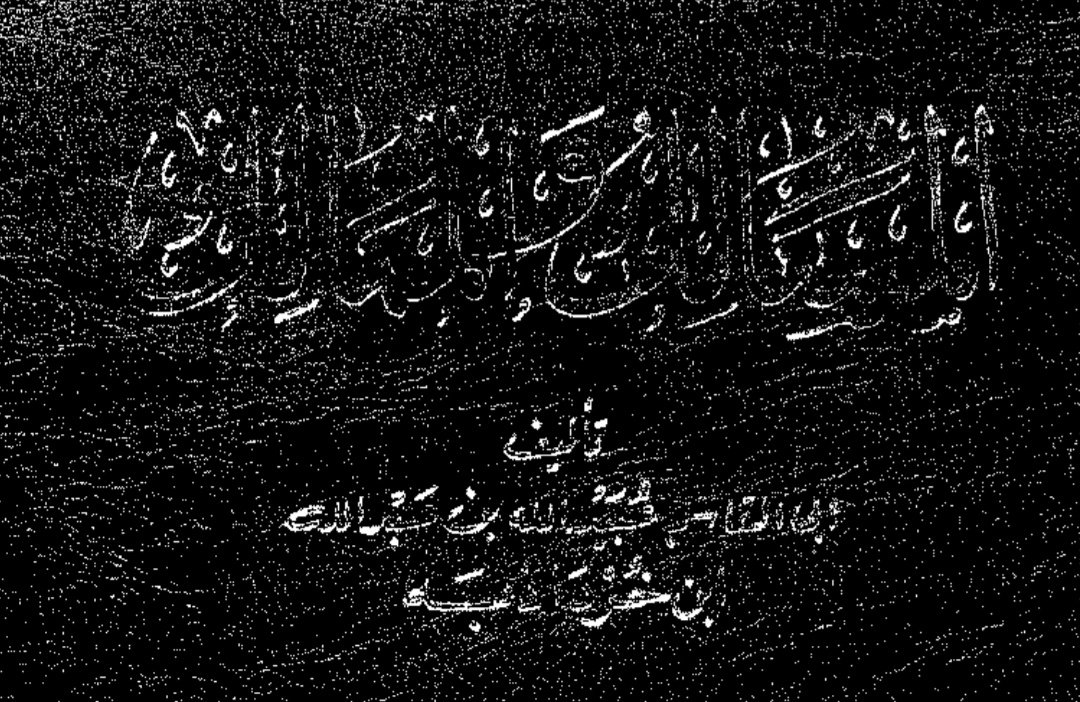 المسالك والممالك
تأليف
أبي القاسم عبيد الله بن عبد الله
بن خرداذبه